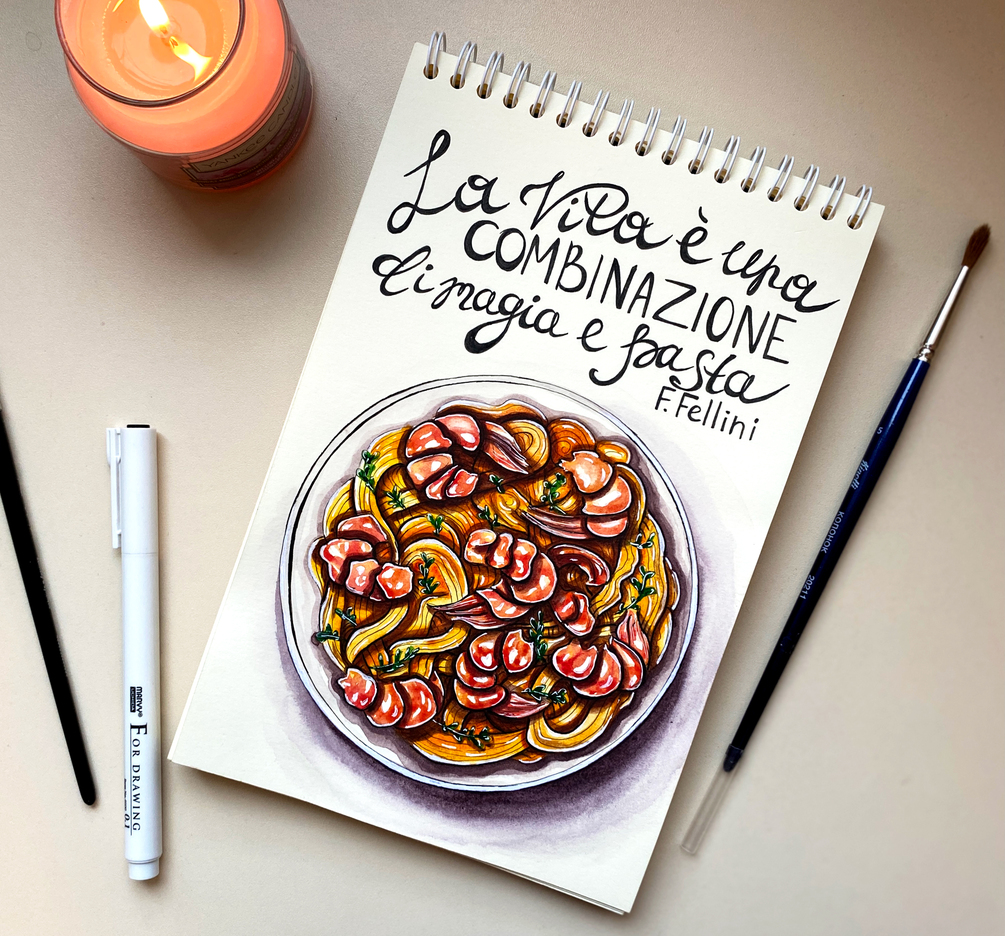 La Vita è una
COMBINAZIONE
di magia e pasta
F. Fellini
YANKEE
marvy
FOR DRAWING
0.1
КОЛОНОК